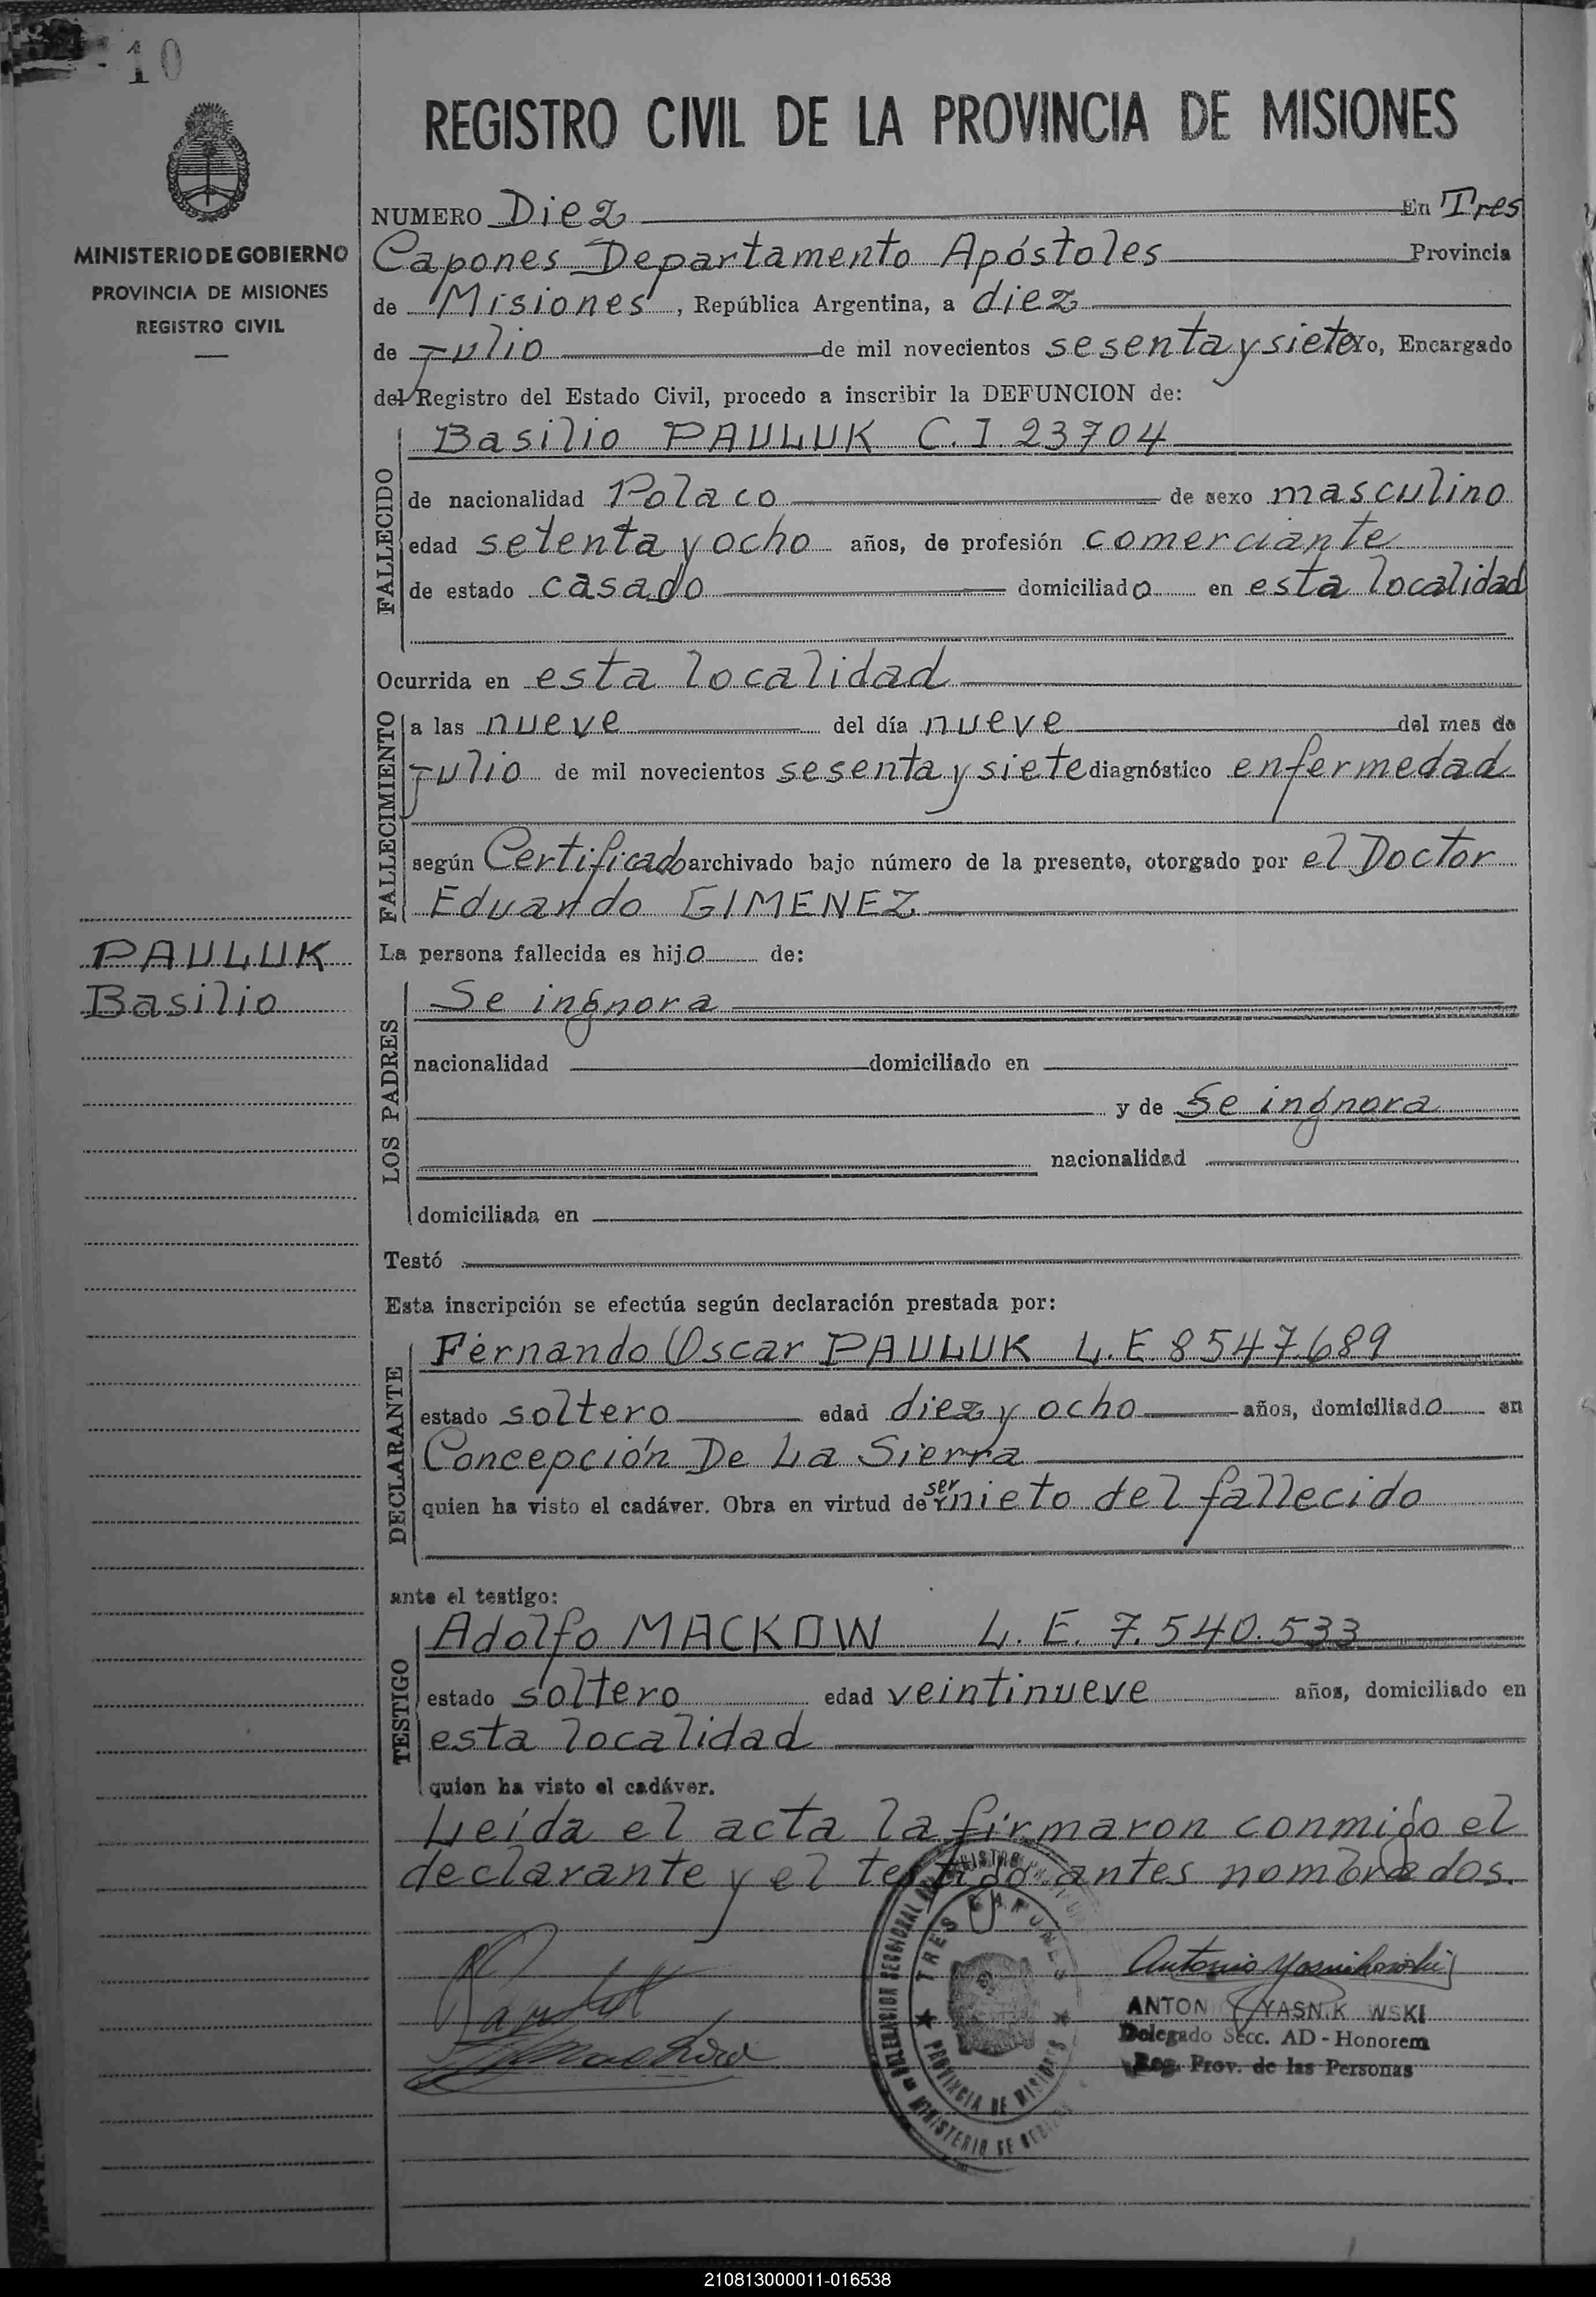 10
REGISTRO CIVIL DE LA PROVINCIA DE MISIONES
MINISTERIO DE GOBIERNO
PROVINCIA DE MISIONES
REGISTRO CIVIL
NUMERO Diez En Tres
Capones Departamento Apóstoles Provincia
de Misiones, República Argentina, a diez
de Julio de mil novecientos sesenta y siete Yo, Encargado
del Registro del Estado Civil, procedo a inscribir la DEFUNCION de:
FALLECIDO
Basilio PAULUK C.I 23704
de nacionalidad Polaco de sexo masculino
edad setenta y ocho años, de profesión comerciante
de estado casado domiciliado en esta localidad
Ocurrida en esta localidad
FALLECIMIENTO
a las nueve del día nueve del mes de
Julio de mil novecientos sesenta y siete diagnóstico enfermedad
según Certificado archivado bajo número de la presente, otorgado por el Doctor
Eduardo GIMENEZ
PAULUK
Basilio
La persona fallecida es hijo de:
LOS PADRES
Se ingnora
nacionalidad domiciliado en
y de Se ingnora
nacionalidad
domiciliada en
Testó
Esta inscripción se efectúa según declaración prestada por:
DECLARANTE
Fernando Oscar PAULUK L.E 8547689
estado soltero edad diez y ocho años, domiciliado en
Concepción De La Sierra
quien ha visto el cadáver. Obra en virtud de ser nieto del fallecido
ante el testigo:
TESTIGO
Adolfo MACKOW L. E. 7.540.533
estado soltero edad veintinueve años, domiciliado en
esta localidad
quien ha visto el cadáver.
Leída el acta la firmaron conmigo el
declarante y el testigo antes nombrados.
TRES CAPONES
PROVINCIA DE MISIONES
MINISTERIO DE
Antonio Yasnikowski
ANTON YASNIK WSKI
Delegado Secc. AD - Honorem
Reg. Prov. de las Personas
210813000011-016538